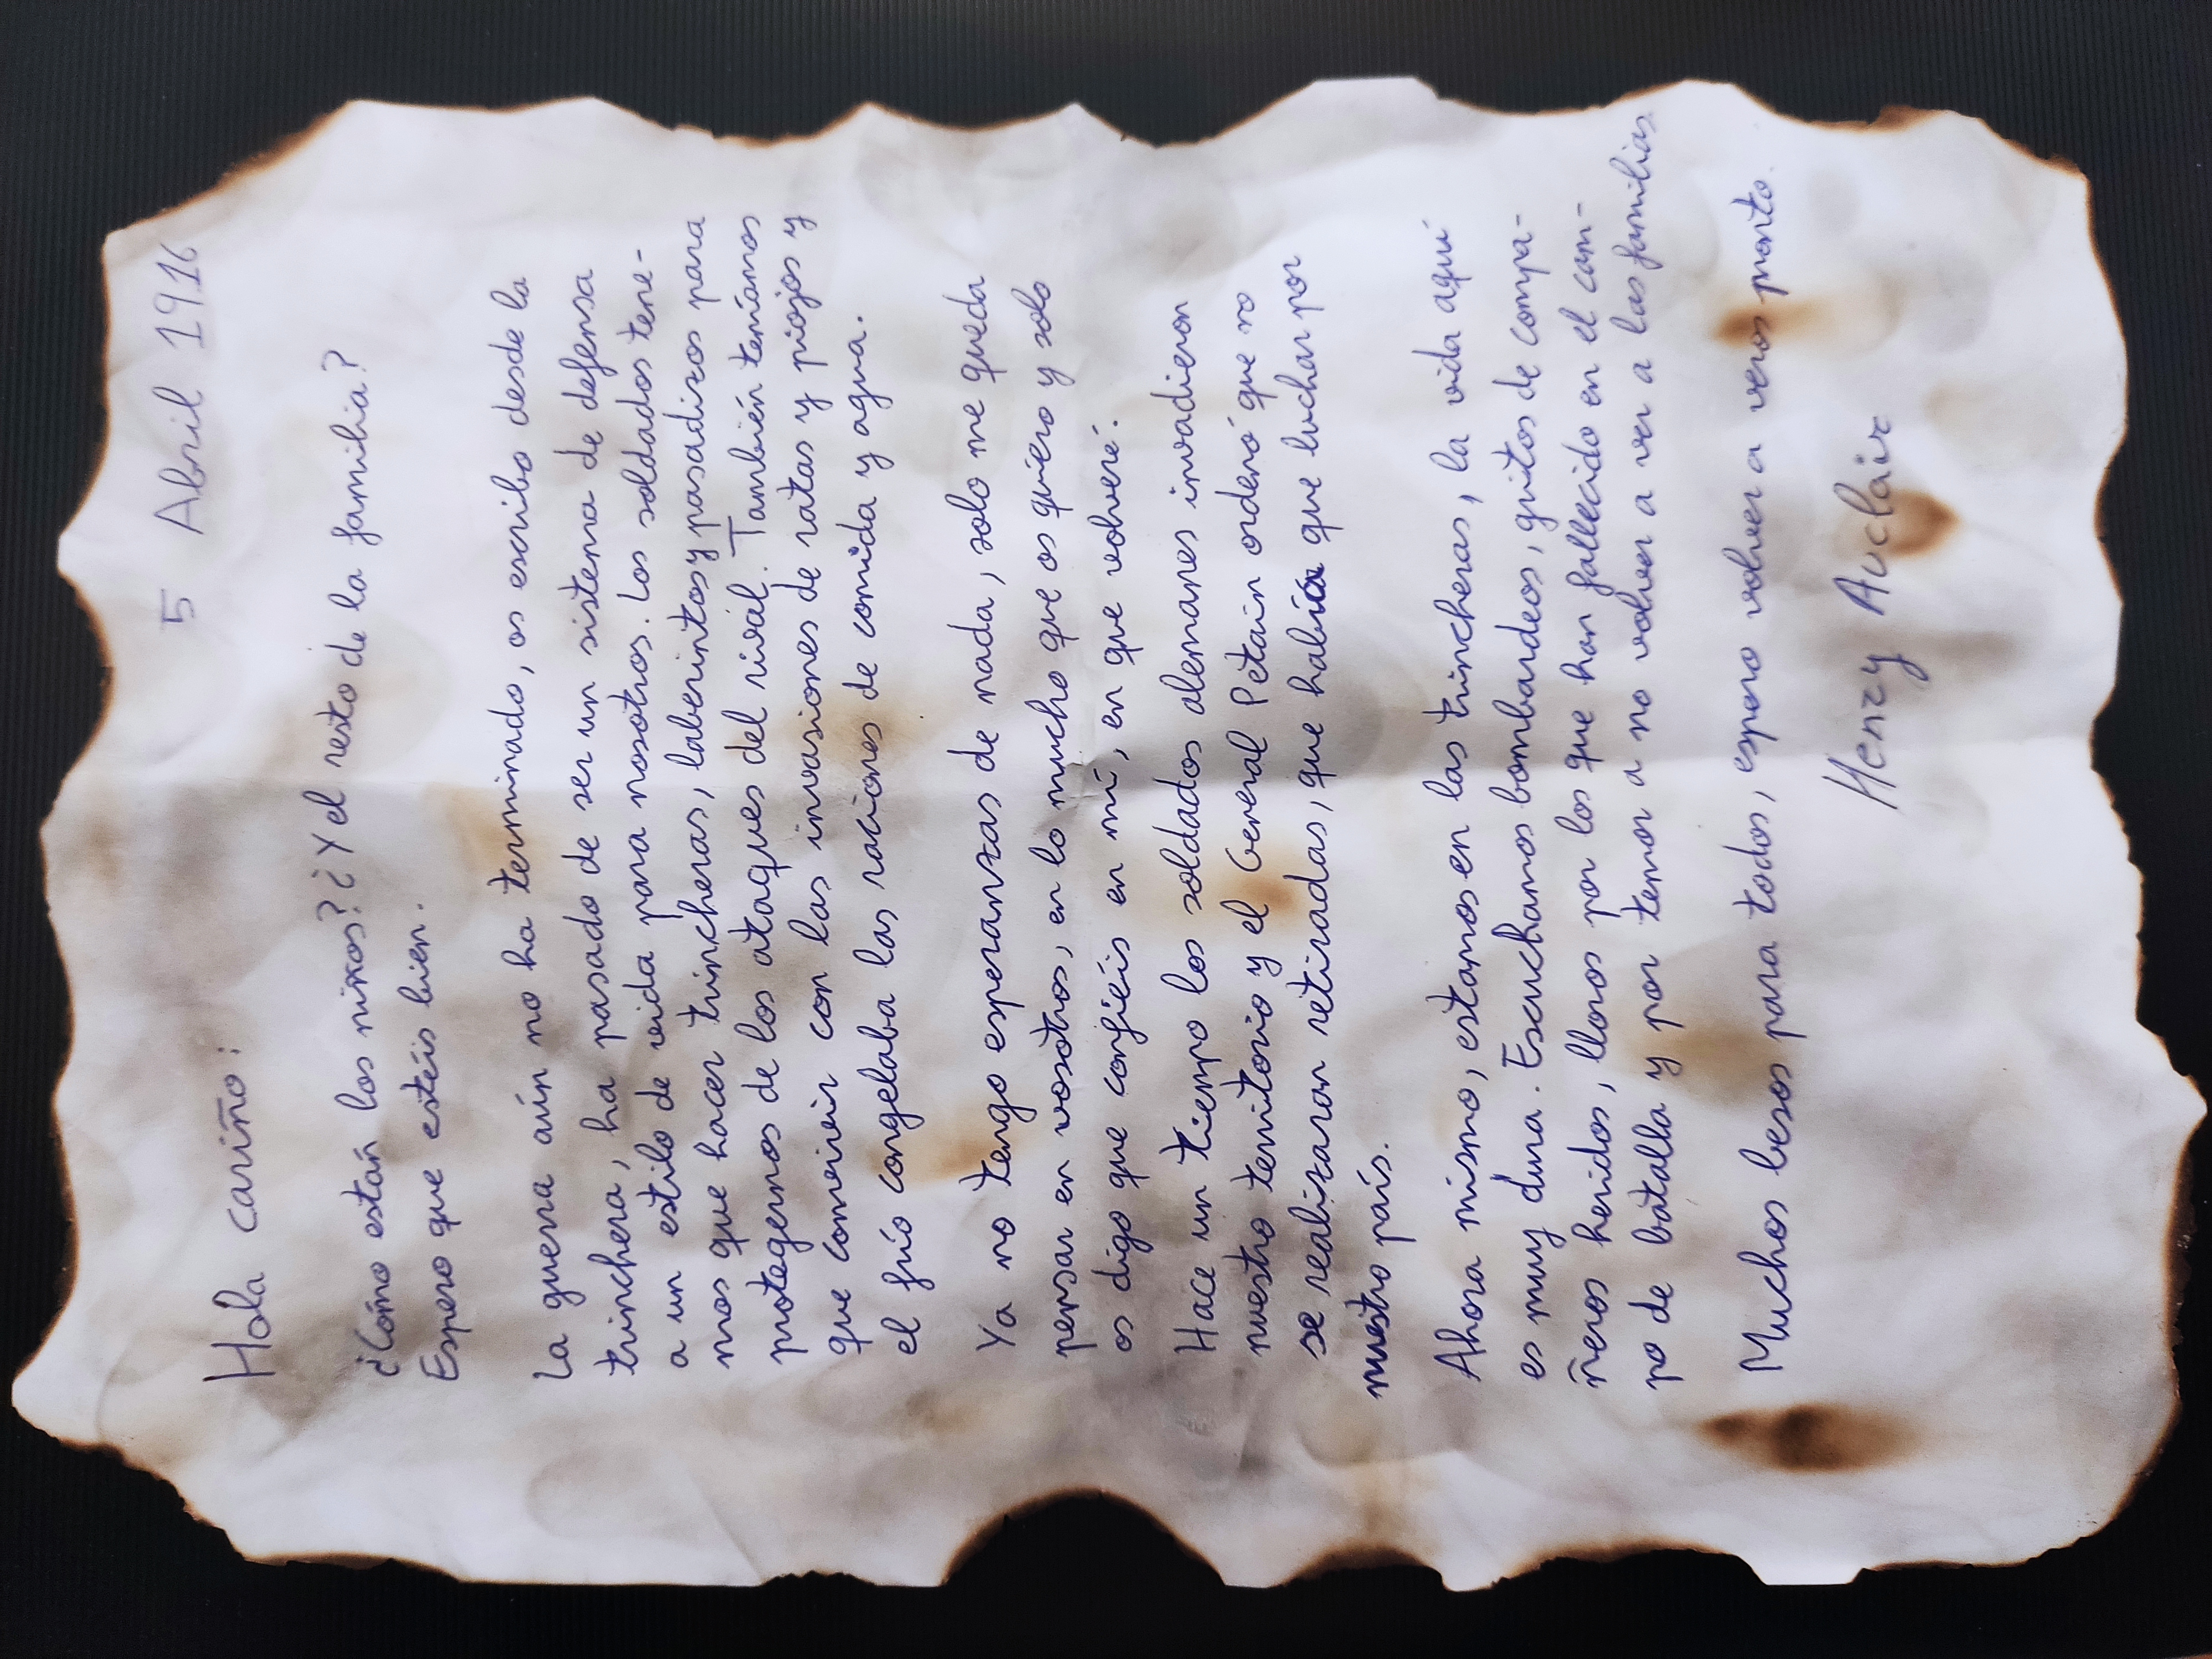 5 Abril 1916
Hola cariño:
¿Cómo están los niños? ¿Y el resto de la familia?
Espero que estéis bien.
La guerra aún no ha terminado, os escribo desde la
trinchera, ha pasado de ser un sistema de defensa
a un estilo de vida para nosotros. Los soldados tene-
mos que hacer trincheras, laberintos y pasadizos para
protegernos de los ataques del rival. También teníamos
que convivir con las invasiones de ratas y piojos y
el frío congelaba las raciones de comida y agua.
Ya no tengo esperanzas de nada, solo me queda
pensar en vosotros, en lo mucho que os quiero y solo
os digo que confiéis en mí, en que volveré.
Hace un tiempo los soldados alemanes invadieron
nuestro territorio y el General Pétain ordenó que no
se realizaran retiradas, que había que luchar por
nuestro país.
Ahora mismo, estamos en las trincheras, la vida aquí
es muy dura. Escuchamos bombardeos, gritos de compa-
ñeros heridos, lloros por los que han fallecido en el cam-
po de batalla y por temor a no volver a ver a las familias
Muchos besos para todos, espero volver a veros pronto.
Henry Auclair